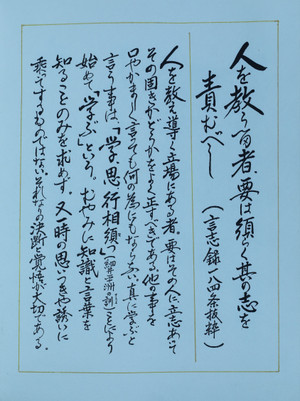 人を教うる者、要は須らく其の志を
責むべし
(言志録一八四条抜粋)
人を教え導く立場にある者、要はその人に立志あって
その固きかどうかをよく正すべきである。他の事を
口やかましく言っても何の為にもならない。真に学ぶと
言う事は、「学思行相須つ」(細井平洲の訓)ことにより
始めて「学ぶ」という。むやみに知識と言葉を
知ることのみを求めず。又一時の思いつきや誘いに
乗ってすすむものではない。それなりの決断と覚悟が大切である。